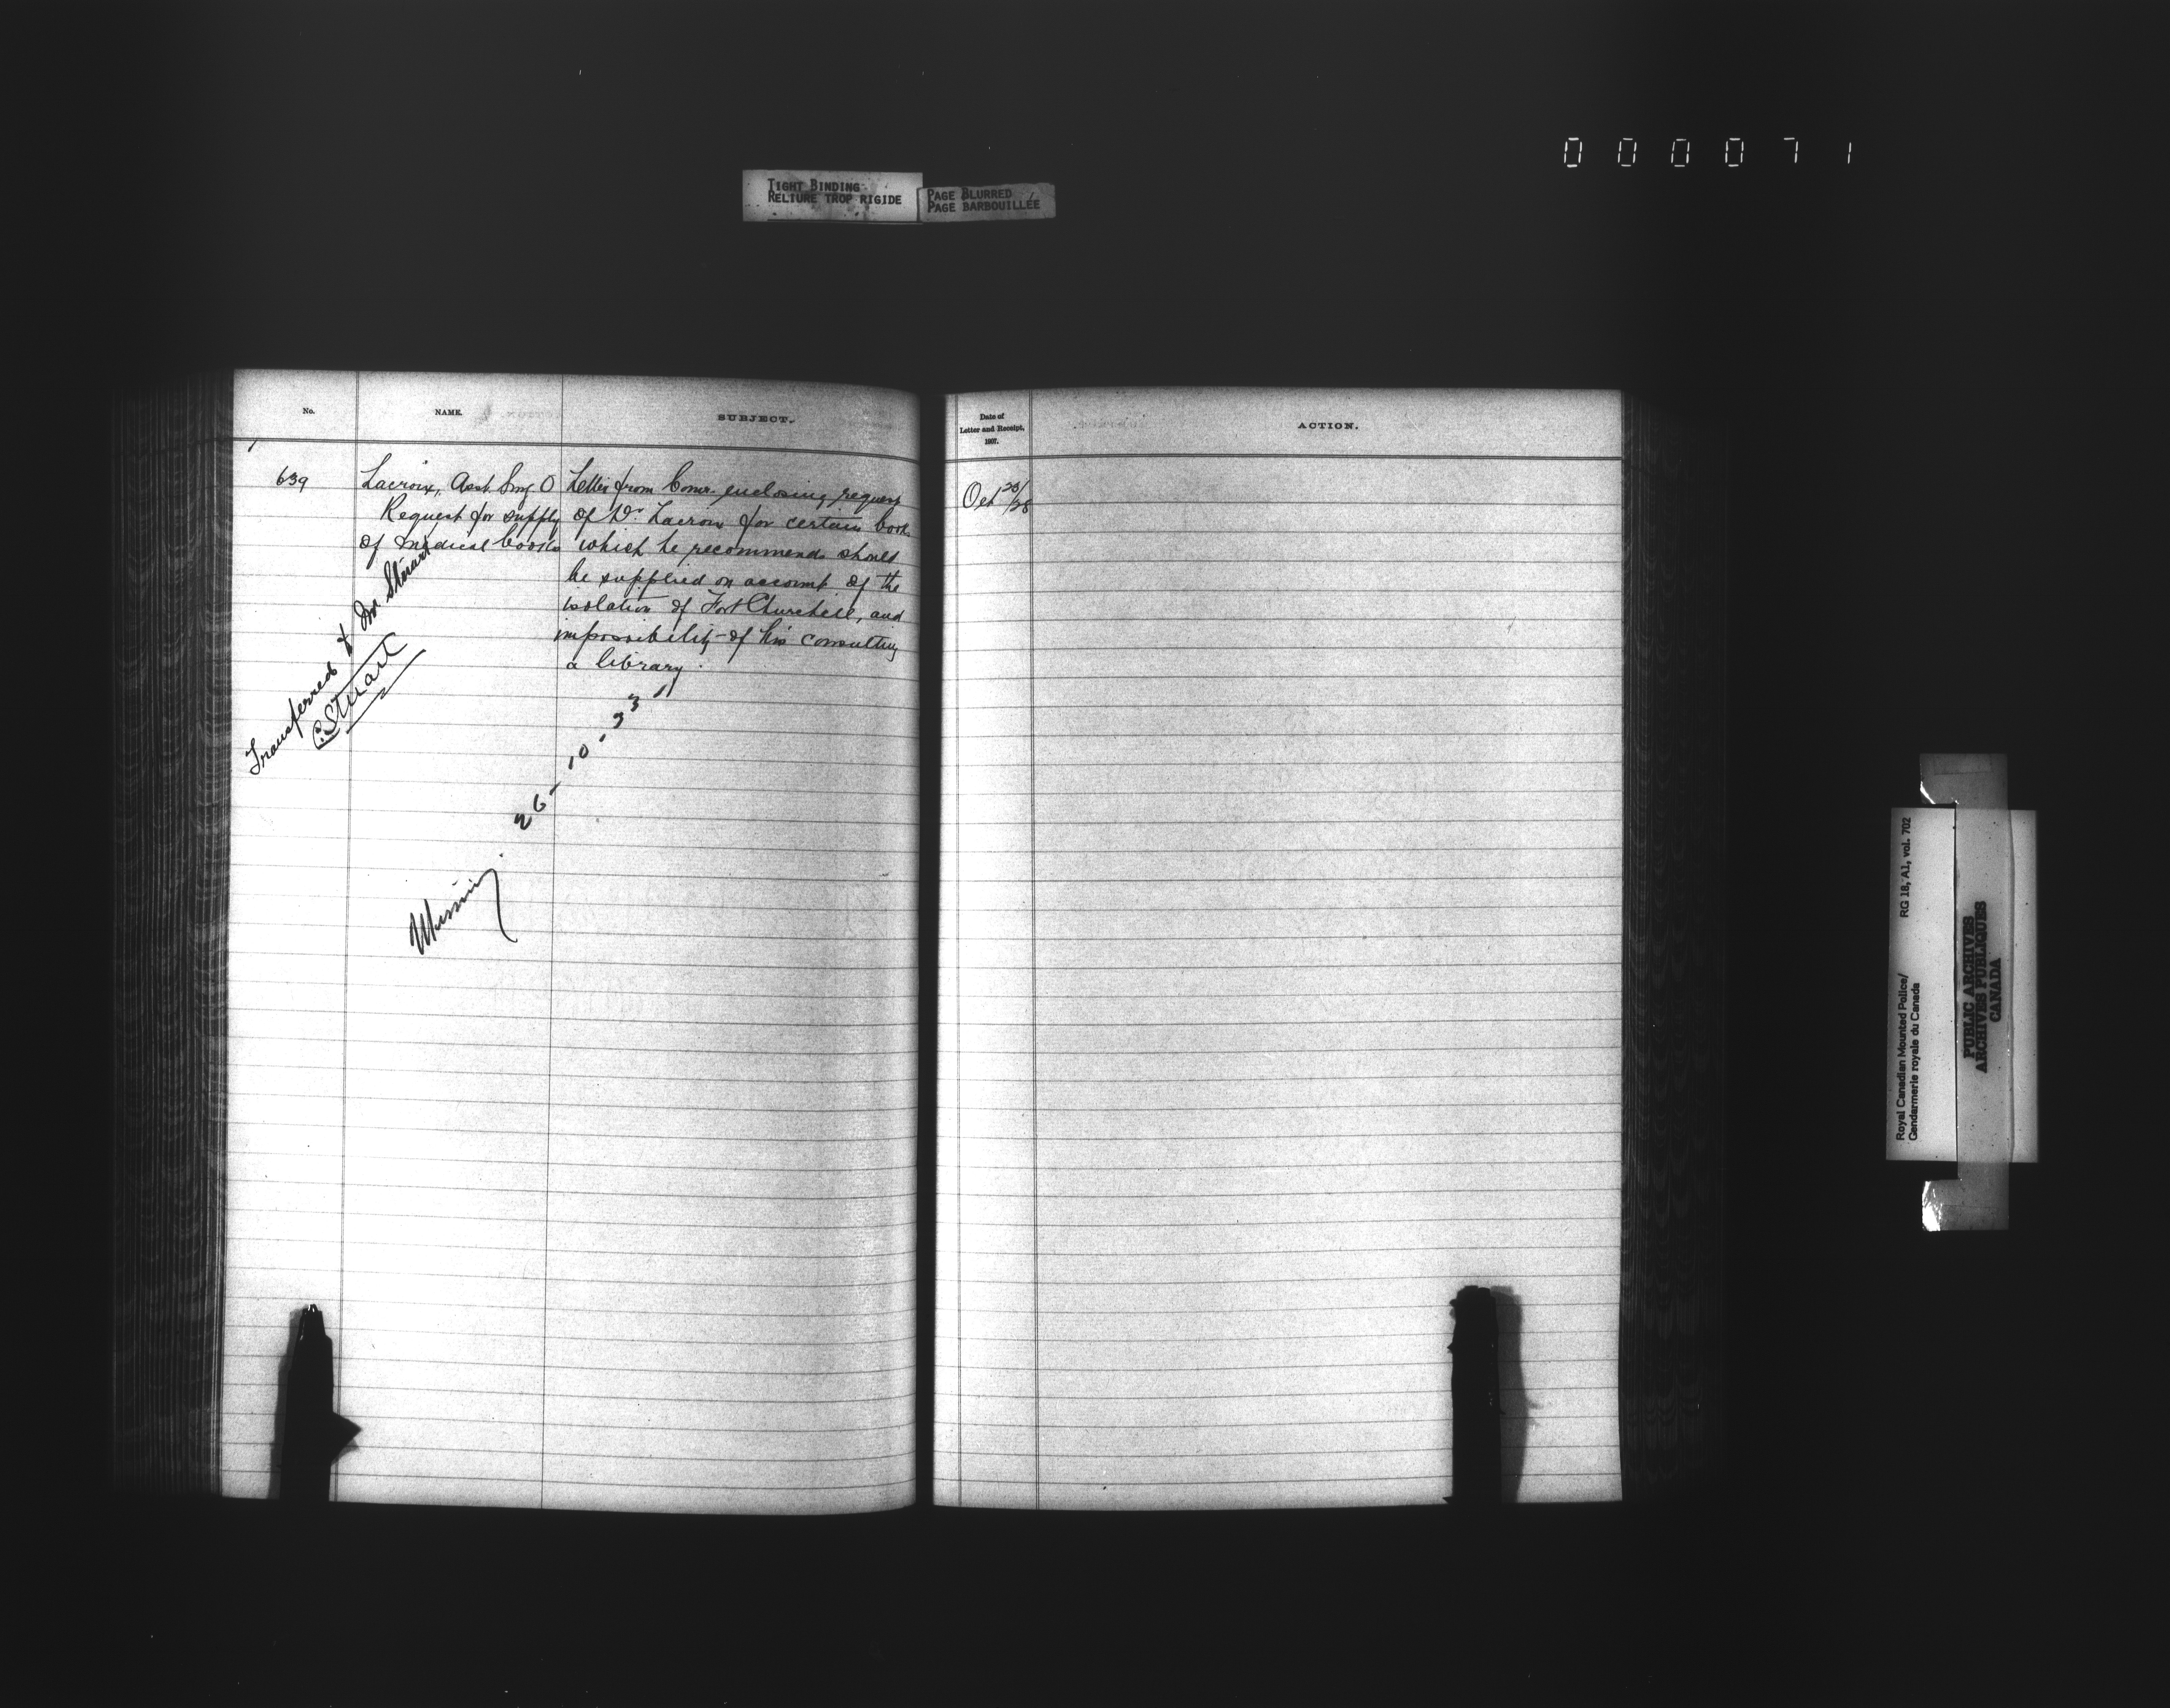 000071
TIGHT BINDING
RELIURE TROP RIGIDE
PAGE BLURRED
PAGE BARBOUILLÉE
No.
NAME.
SUBJECT.
639
Lacroix, Asst. Surg O
Request for supply
of medical books
Letter from Comr. enclosing request
of Dr. Lacroix for certain book
which he recommends should
be supplied on account of the
isolation of Fort Churchill, and
impossibility of his consulting
a library.
Transferred Mr Stuart
C. Stuart
26-10-33
Missing
Date of
Letter and Receipt,
1907.
ACTION.
Oct 23/28
Royal Canadian Mounted Police/
Gendarmerie royale du Canada
RG 18, A1, vol. 702
PUBLIC ARCHIVES
ARCHIVES PUBLIQUES
CANADA